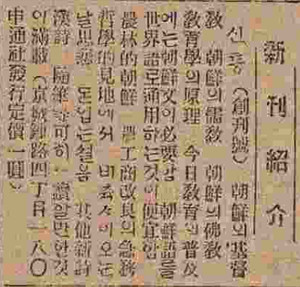 新刊紹介
신동(創刊號) 朝鮮의基督
敎 朝鮮의儒敎 朝鮮의佛敎
敎育學의原理 今日敎育의普及
에는朝鮮文이必要함 朝鮮語를
世界語로通用하는것이便宜함
農林的朝鮮 農工商改良의急務
哲學的見地에서 비로서이오는
날思想 돈업는설음 其他新詩
漢詩 隨筆等可히一讀알만한것
이滿載(京城鍾路四丁目一八〇
申通社發行定價一圓)